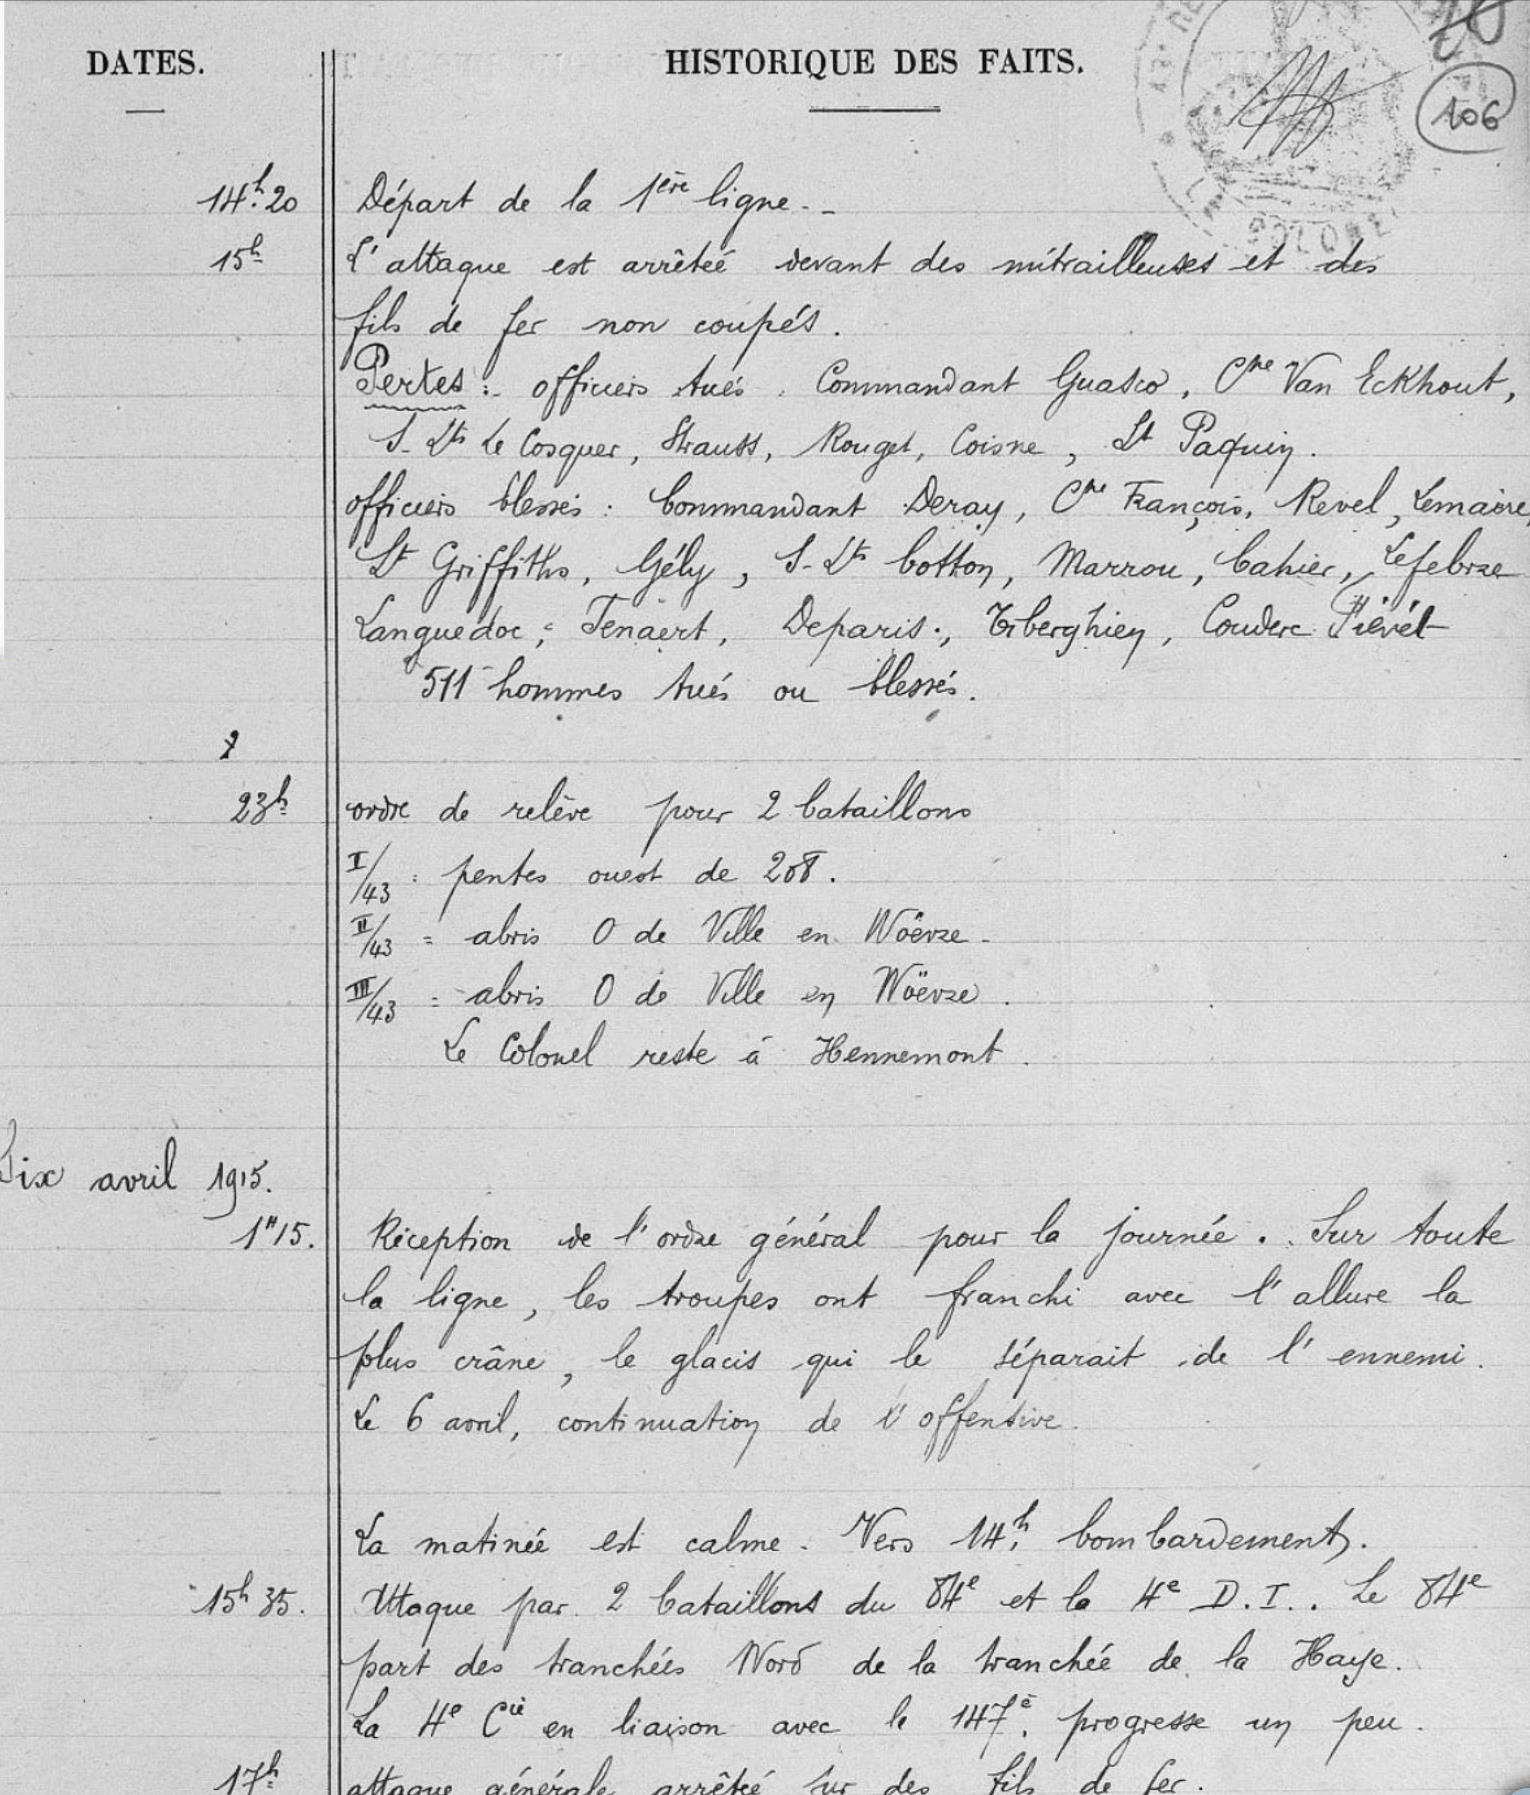 DATES. HISTORIQUE DES FAITS.
106
14h.20 Départ de la 1ère ligne. -
15h L'attaque est arrêtée devant des mitrailleuses et des
fils de fer non coupés.
Pertes : officiers tués. Commandant Guasco, Cne Van Eckhout,
S.Lts Le Cosquer, Strauss, Rouget, Coisne, Lt Paquin.
officiers blessés : Commandant Deray, Cne François, Revel, Lemaire,
Lt Griffiths, Gély, S-Lts Cotton, Marrou, Cahier, Lefebvre
Languedoc, Tenaert, Deparis, Tiberghien, Couderc Piévét
511 hommes tués ou blessés.
23h ordre de relève pour 2 bataillons
I/43 : pentes ouest de 208.
II/43 = abris O de Ville en Woëvre -
III/43 = abris O de Ville en Woëvre.
Le Colonel reste à Hennemont.
Six avril 1915.
1H15. Réception de l'ordre général pour la journée. Sur toute
la ligne, les troupes ont franchi avec l'allure la
plus crâne, le glacis qui le séparait de l'ennemi.
Le 6 avril, continuation de l'offensive.
La matinée est calme. Vers 14h, bombardement.
15h35. Attaque par 2 bataillons du 84e et la 4e D.I.. Le 84e
part des tranchées Nord de la tranchée de la Haye.
La 4e Cie en liaison avec le 147e. progresse un peu.
17h attaque générale arrêtée sur des fils de fer.